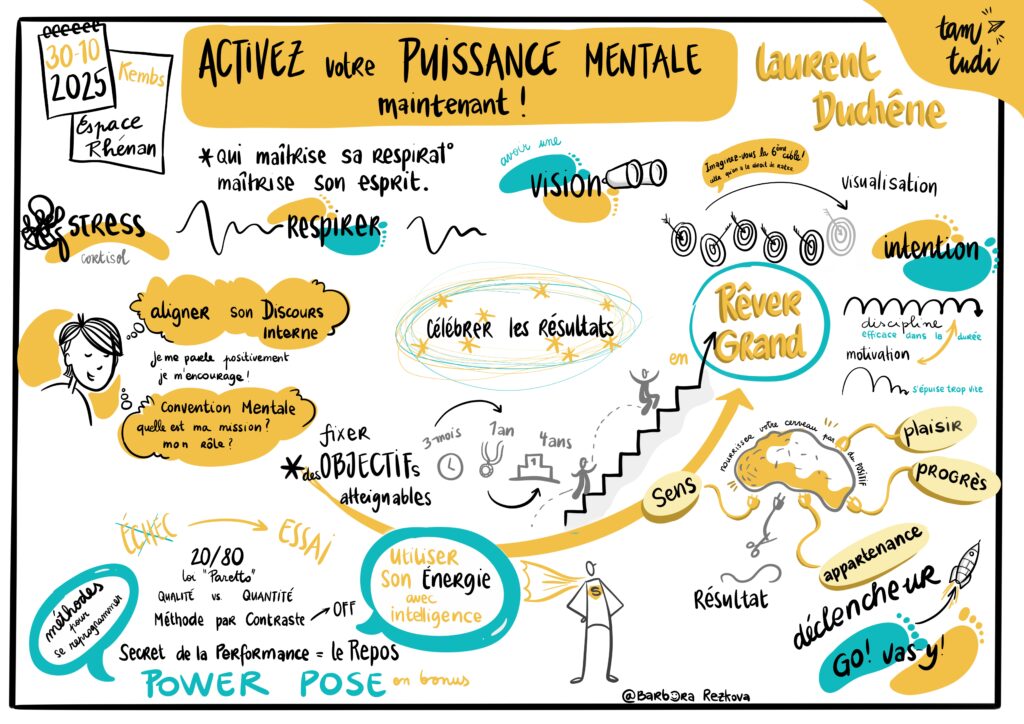 30-10
2025
Kembs
Espace
Rhénan
ACTIVEZ votre PUISSANCE MENTALE
maintenant !
Laurent
Duchêne
tam
tudi
*QUI MAÎTRISE SA RESPIRAT°
MAÎTRISE SON ESPRIT.
avoir une
VISION
Imaginez-vous la 6ème cible!
celle qu'on a le droit de
visualisation
STRESS
cortisol
RESPIRER
intention
aligner son Discours
Interne
je me parle positivement
je m'encourage !
Convention Mentale
quelle est ma mission ?
mon rôle ?
Célébrer les résultats
en
Rêver
Grand
discipline
efficace dans la durée
motivation
s'épuise trop vite
fixer
*des OBJECTIFs
atteignables
3 mois
1an
4ans
1
Sens
nourrissez votre cerveau par du POSITIF
plaisir
PROGRÈS
appartenance
Résultat
déclencheur
GO! Vas-y!
ÉCHEC
ESSAI
20/80
Loi "Paretto"
QUALITÉ vs. QUANTITÉ
Méthode par Contraste
OFF
méthodes
pour
se reprogrammer
Utiliser
Son Énergie
avec
intelligence
S
Secret de la Performance = le Repos
POWER POSE en bonus
@Barbora Rezkova